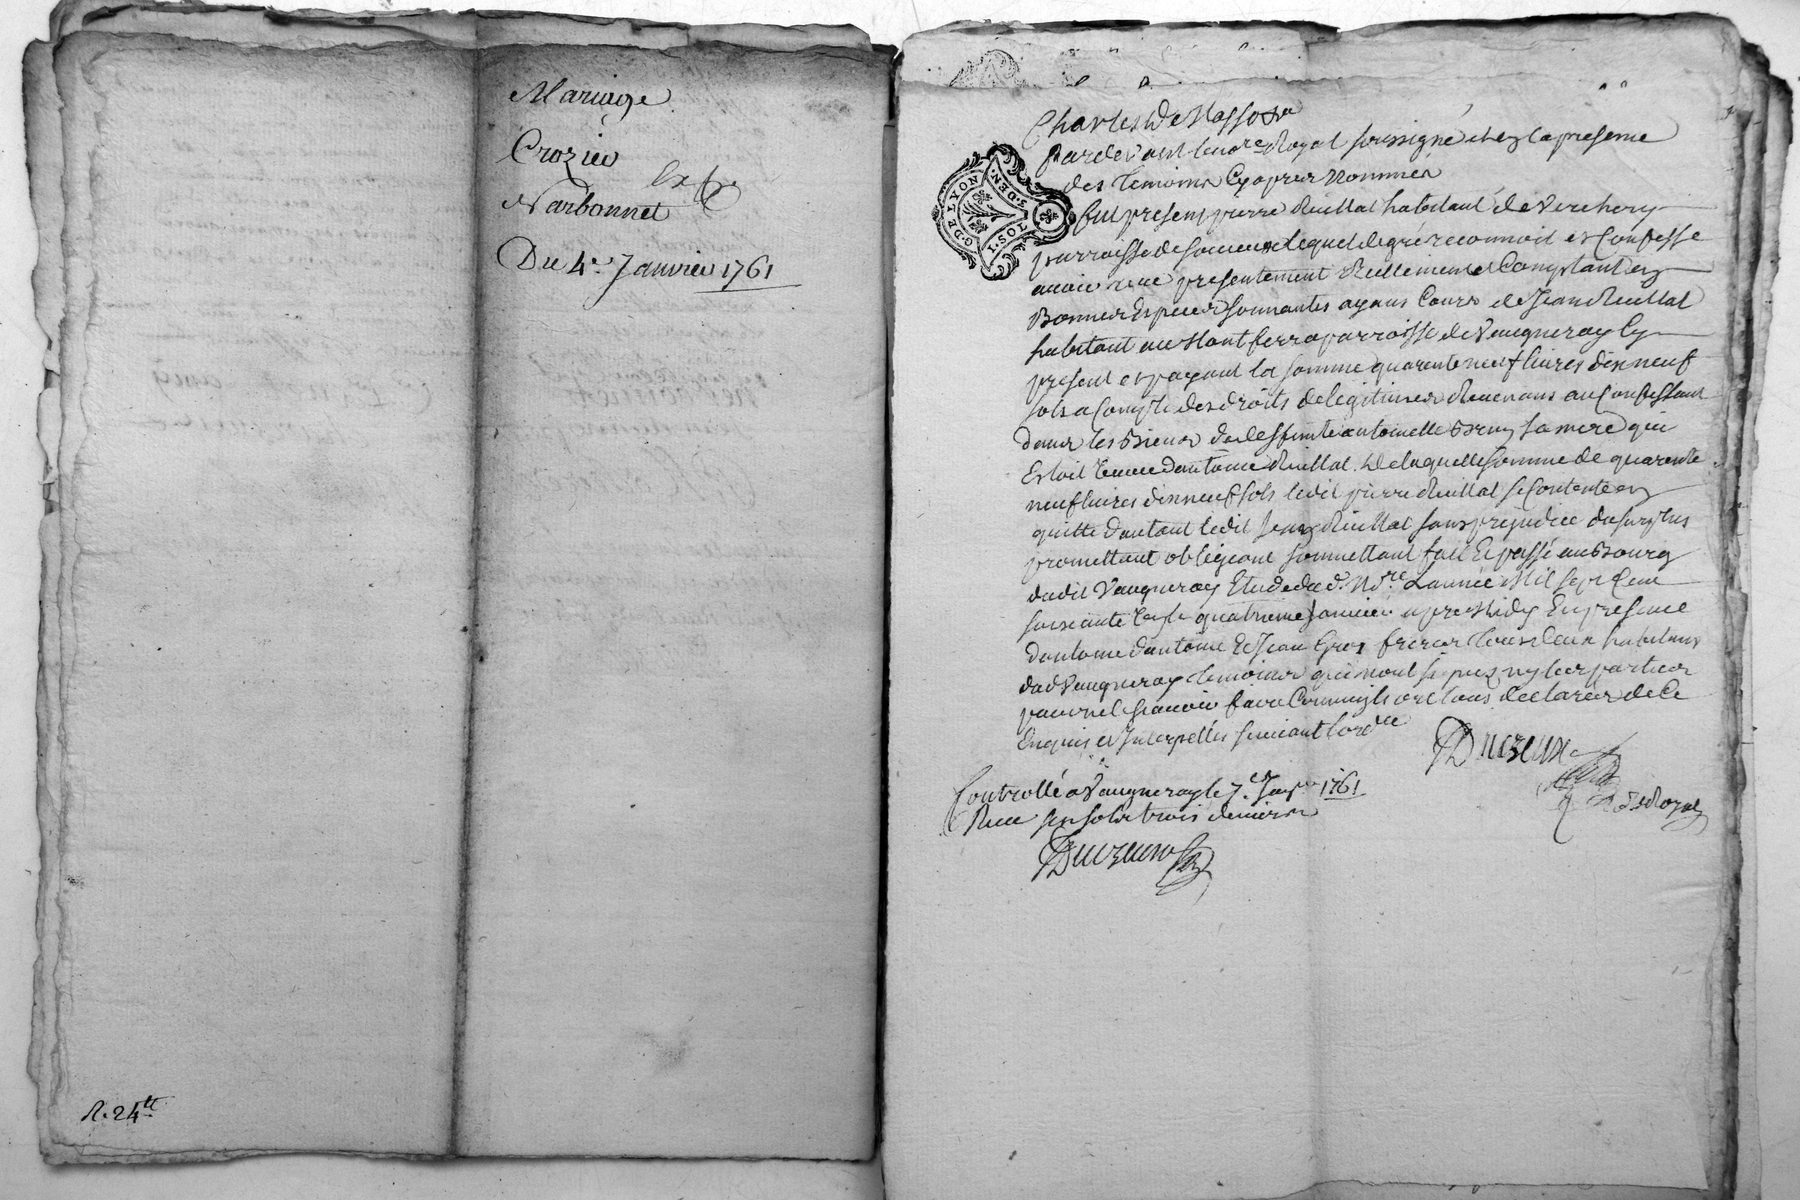 Mariage
Crozier
Narbonnet
Du 4e. Janvier 1761
R. 24tt
G. DE LYON
1. SOL
5. DEN.
Pardevant le no.re Royal soussigné et en la presence
des temoins Cy apres Nommés
fut present pierre Riullat habitant de Verchery
parroisse de lequel de gré reconnoit et Confesse
avoir receu presentement Reellement et Comptant en
Bonnes Especes sonnantes ayans Cours de Jean Riullat
habitant au Montferra parroisse de Vaugneray Cy
present et payant la somme quarante neuf livres dix neuf
sols a Compte des droits de legitimes Revenans au Confessant
dans les Biens de deffunte antoinette Bruy sa mere qui
Estoit veuve d'antoine Riullat. De laquelle somme de quarante
neuf livres dix neuf sols ledit pierre Riullat se Contente en
quitte d'autant ledit Jean Riullat sans prejudice du surplus
promettant obligeant soumettant fait Et passé au Bourg
dudit Vaugneray Etude du d. No.re L'année Mil sept Cent
soixante Et le quatrieme Janvier apres Midy En presence
d'antoine Et Jean Gros freres tous deux habitans
dud Vaugneray temoins qui n'ont signé ny les parties
pour ne sçavoir faire Comme ils ont tous declarés de Ce
Enquis et Interpellés suivant l'ord.ce
Ducreux
No.re Royal
Controllé a Vaugneray le 7e. Janv.r 1761
Receu sols trois deniers
Ducreux